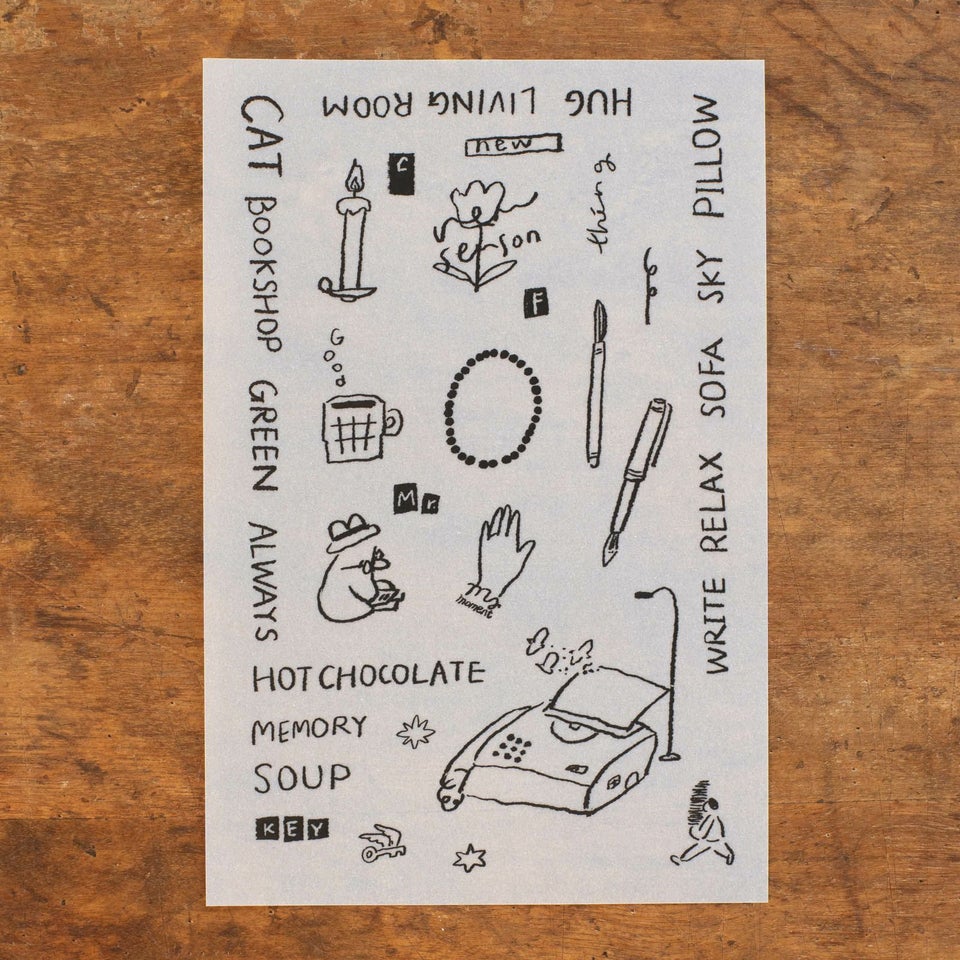 HUG LIVING ROOM
CAT BOOKSHOP GREEN ALWAYS
WRITE RELAX SOFA SKY PILLOW
new
C
thing
F
GOOD
Mr
my
moment
HOT CHOCOLATE
MEMORY
SOUP
KEY